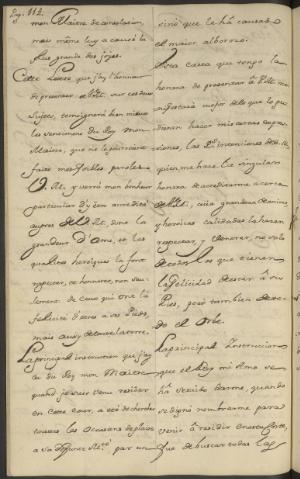 Pag. 114.
mon Maitre de consolation
mais même luy a causé la
plus grande des joyes.
Cette Lettre que j'ay l'honneur
de presenter a V. M. sur ces deux
Sujets, temoignera bien mieux
les sentimens du Roy mon
Maitre, que ne le pourroient
faire mes foibles paroles.
V. M. y verra mon bonheur
particulier d'y être accredité
aupres de V. M. dont la
grandeur d'Ame, et les
qualités heroiques la font
respecter, et honnorer, non seu-
lement de ceux qui ont la
felicité d'être a ses Pieds,
mais aussy de toute la terre.
La principal instruction que j'ay
eu du Roy mon Maitre
quand je suis venu resider
en cette Cour, a eté de chercher
toutes les Occasions de plaire
a Va Majesté par un
sino que le há causado
el maior alborozo.
Esta carta que tengo la
honrra de presentar á V. M. ma-
nifestará mejor de lo que lo pu-
dieran hacer mis cortas expre-
siones, las Rs. intenciones de S. M.
quien me hace la singular
honrra de acreditarme acerca
de V. M. cuia grandeza de animo
y heroicas calidades la hacen
respetar, y venerar, no solo
de todos los que tienen
la felicidad de estár á sus
Pies, pero tambien de to-
do el Orbe.
La principal Instruccion
que el Rey mi Amo se
há servido darme, quando
se dignó nombrarme para
venir á residir en esta Corte,
fue de buscar todas las